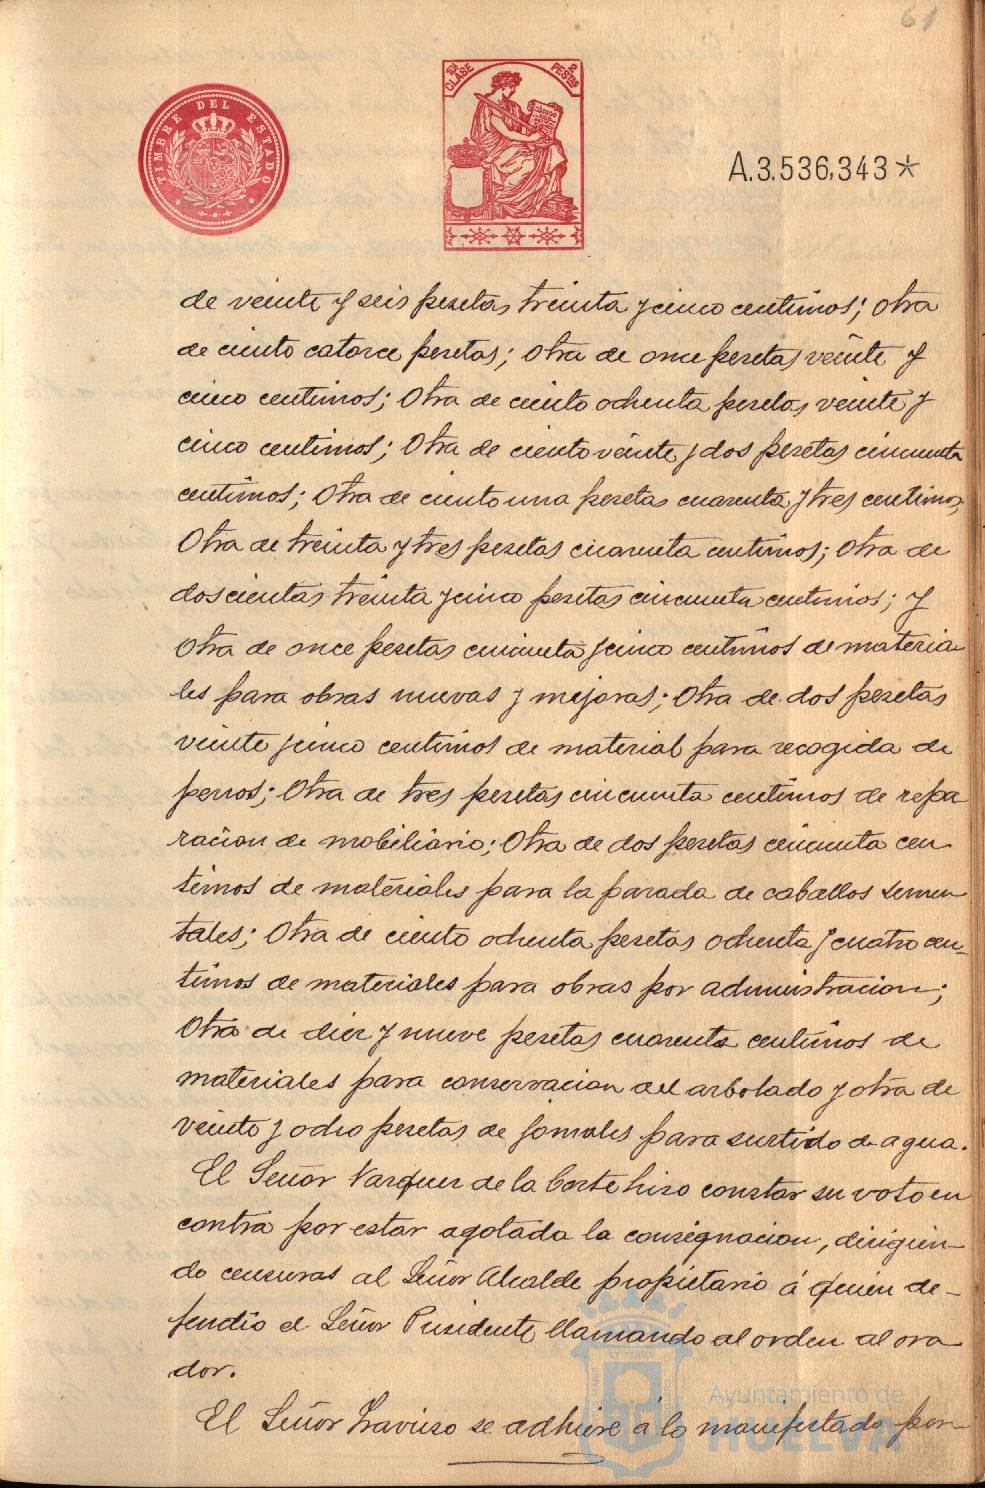 61
TIMBRE DEL ESTADO
10ª CLASE 2 PESTAS
A.3,536,343*
de veinte y seis pesetas treinta y cinco centimos; Otra
de ciento catorce pesetas; Otra de once pesetas veinte y
cinco centimos; Otra de ciento ochenta pesetas veinte y
cinco centimos; Otra de ciento veinte y dos pesetas cincuenta
centimos; Otra de ciento una pesetas cuarenta y tres centimos,
Otra de treinta y tres pesetas cuarenta centimos; Otra de
doscientas treinta y cinco pesetas cincuenta centimos; y
Otra de once pesetas cincuenta y cinco centimos de materia
les para obras nuevas y mejoras; Otra de dos pesetas
veinte y cinco centimos de material para recogida de
perros; Otra de tres pesetas cincuenta centimos de repa
racion de mobiliario; Otra de dos pesetas cincuenta cen
timos de materiales para la parada de caballos semen
tales; Otra de ciento ochenta pesetas ochenta y cuatro cen-
timos de materiales para obras por administracion;
Otra de diez y nueve pesetas cuarenta centimos de
materiales para conservacion del arbolado y otra de
veinte y ocho pesetas de jornales para surtido de agua.
El Señor Vazquez de la Corte hizo constar su voto en
contra por estar agotada la consignacion, dirigien-
do censuras al Señor Alcalde propietario á quien de-
fendio el Señor Presidente llamando al orden al ora
dor.
El Señor Travieso se adhiere á lo manifestado por
Ayuntamiento de
HUELVA